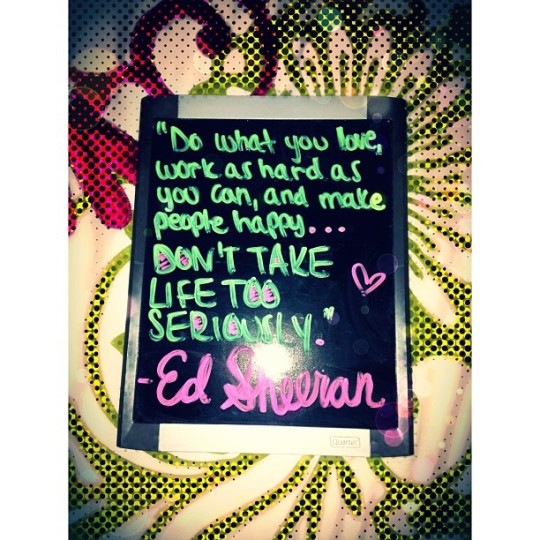 "Do what you love,
work as hard as
you can, and make
people happy...
DON'T TAKE
LIFE TOO
SERIOUSLY."
-Ed Sheeran
Quartet